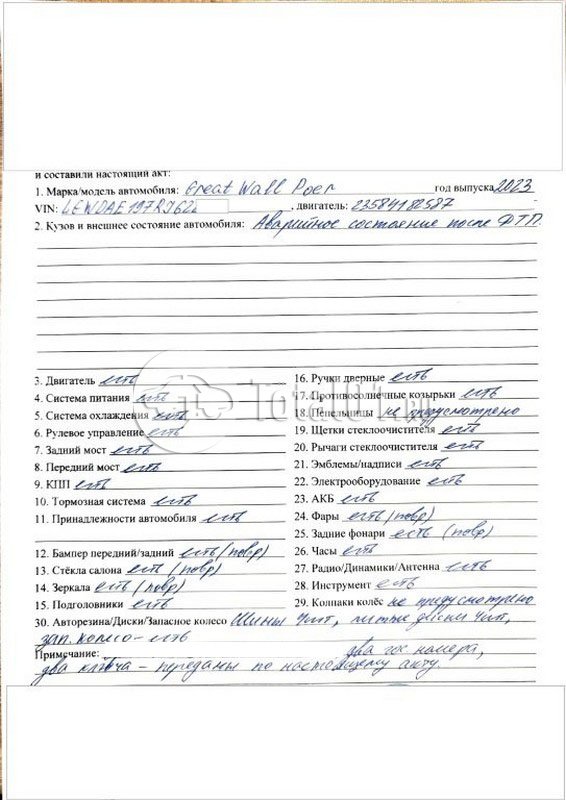 и составили настоящий акт:
1. Марка/модель автомобиля: Great Wall Poer год выпуска 2023
VIN: , двигатель: 23584182587
2. Кузов и внешнее состояние автомобиля: Аварийное состояние после ДТП.
3. Двигатель есть
4. Система питания есть
5. Система охлаждения есть
6. Рулевое управление есть
7. Задний мост есть
8. Передний мост есть
9. КПП есть
10. Тормозная система есть
11. Принадлежности автомобиля есть
12. Бампер передний/задний есть (повр)
13. Стёкла салона есть (повр)
14. Зеркала есть (повр)
15. Подголовники есть
16. Ручки дверные есть
17. Противосолнечные козырьки есть
18. Пепельницы не предусмотрено
19. Щетки стеклоочистителя есть
20. Рычаги стеклоочистителя есть
21. Эмблемы/надписи есть
22. Электрооборудование есть
23. АКБ есть
24. Фары есть (повр)
25. Задние фонари есть (повр)
26. Часы есть
27. Радио/Динамики/Антенна есть
28. Инструмент есть
29. Колпаки колёс не предусмотрено
30. Авторезина/Диски/Запасное колесо Шины 4шт, литые диски 4шт,
зап. колесо - есть
Примечание: два гос. номера,
два ключа - переданы по настоящему акту.
Total01.ru